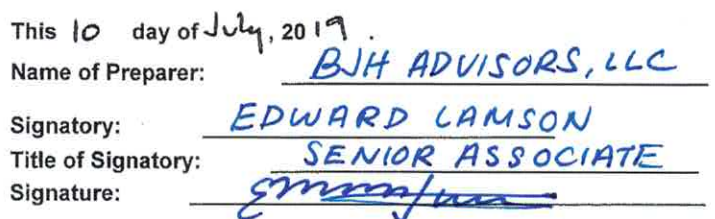 This 10 day of July, 2019.
Name of Preparer: BJH ADVISORS, LLC
Signatory: EDWARD LAMSON
Title of Signatory: SENIOR ASSOCIATE
Signature: